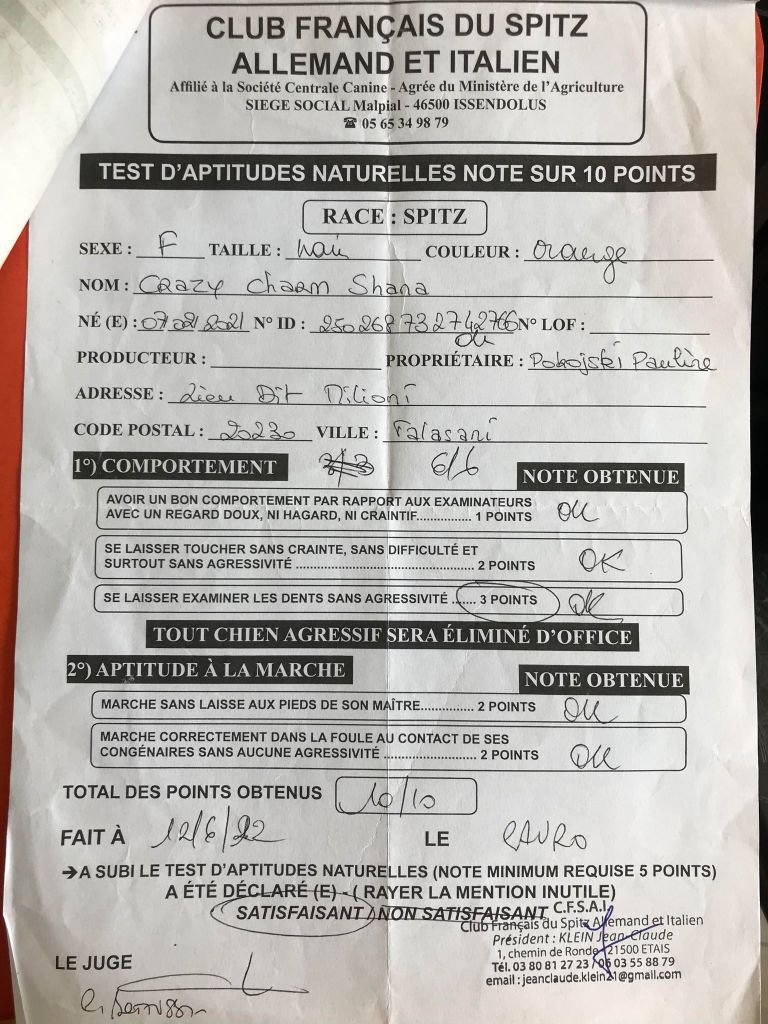 CLUB FRANÇAIS DU SPITZ
ALLEMAND ET ITALIEN
Affilié à la Société Centrale Canine - Agrée du Ministère de l'Agriculture
SIEGE SOCIAL Malpial - 46500 ISSENDOLUS
☎ 05 65 34 98 79
TEST D'APTITUDES NATURELLES NOTE SUR 10 POINTS
RACE : SPITZ
SEXE : F TAILLE : nain COULEUR : orange
NOM : Crazy Charm Shana
NÉ (E) : 07/02/2021 N° ID : 250268732742766 N° LOF :
PRODUCTEUR : PROPRIÉTAIRE : Pokojski Pauline
ADRESSE : Lieu Dit
CODE POSTAL : 20230 VILLE : Talasani
1°) COMPORTEMENT 6/6 NOTE OBTENUE
AVOIR UN BON COMPORTEMENT PAR RAPPORT AUX EXAMINATEURS
AVEC UN REGARD DOUX, NI HAGARD, NI CRAINTIF................ 1 POINTS OK
SE LAISSER TOUCHER SANS CRAINTE, SANS DIFFICULTÉ ET
SURTOUT SANS AGRESSIVITÉ ...................................................... 2 POINTS OK
SE LAISSER EXAMINER LES DENTS SANS AGRESIVITÉ ....... 3 POINTS OK
TOUT CHIEN AGRESSIF SERA ÉLIMINÉ D'OFFICE
2°) APTITUDE À LA MARCHE NOTE OBTENUE
MARCHE SANS LAISSE AUX PIEDS DE SON MAÎTRE............... 2 POINTS OK
MARCHE CORRECTEMENT DANS LA FOULE AU CONTACT DE SES
CONGÉNAIRES SANS AUCUNE AGRESSIVITÉ .......................... 2 POINTS OK
TOTAL DES POINTS OBTENUS 10/10
FAIT À 12/6/22 LE
➔A SUBI LE TEST D'APTITUDES NATURELLES (NOTE MINIMUM REQUISE 5 POINTS)
A ÉTÉ DÉCLARÉ (E) - ( RAYER LA MENTION INUTILE)
SATISFAISANT / NON SATISFAISANT
C.F.S.A.I.
Club Français du Spitz Allemand et Italien
Président : KLEIN Jean-Claude
1, chemin de Ronde 21500 ETAIS
Tél. 03 80 81 27 23 / 06 03 55 88 79
email : jeanclaude.klein21@gmail.com
LE JUGE